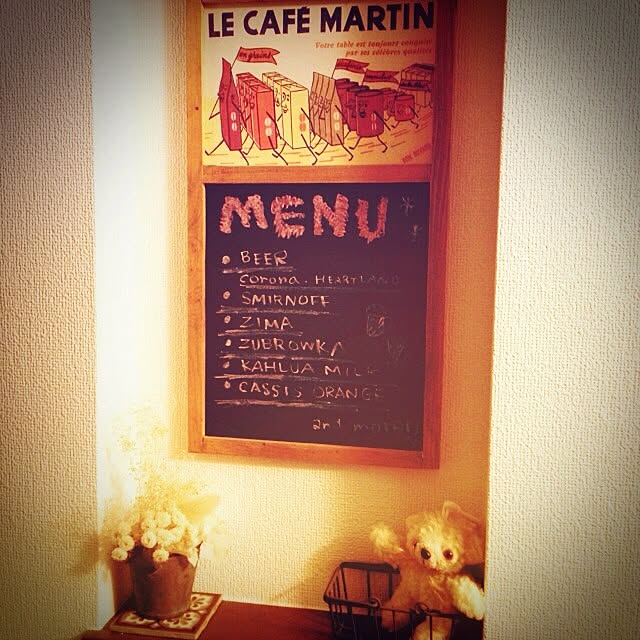 LE CAFÉ MARTIN
Votre table est toujours conquise
par ses célèbres qualités
en grains
MENU
• BEER
Corona. HEARTLAND
• SMIRNOFF
• ZIMA
• ZUBROWKA
• KAHLUA MILK
• CASSIS ORANGE
and more